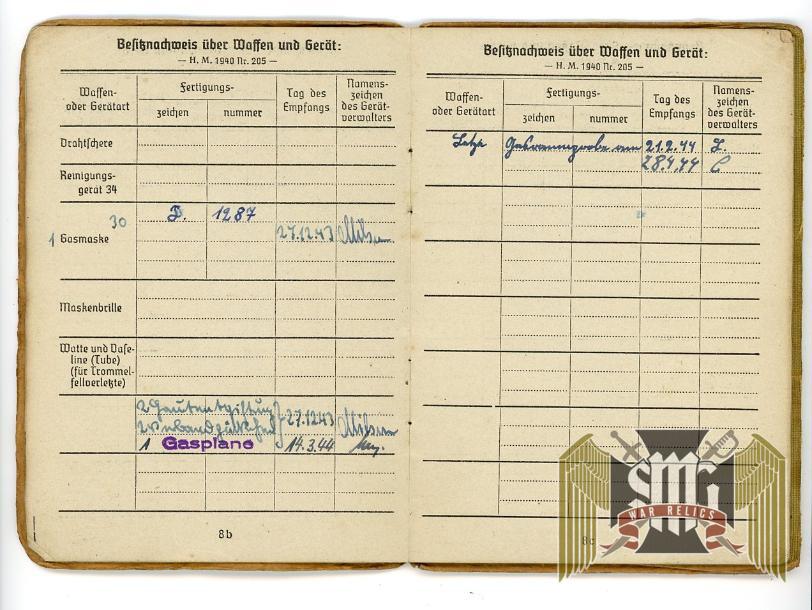 Besitznachweis über Waffen und Gerät:
— H. M. 1940 Nr. 205 —
Waffen- oder Geräteart
Fertigungs-
zeichen
nummer
Tag des Empfangs
Namens-zeichen des Gerät-verwalters
Drahtschere
Reinigungs-
gerät 34
1 Gasmaske 30 D. 1287
27.12.43
Maskenbrille
Watte und Vase-
line (Tube)
(für Trommel-
fellverletzte)
2
2
27.12.43
1 Gasplane 14.3.44
8b
Besitznachweis über Waffen und Gerät:
— H. M. 1940 Nr. 205 —
Waffen- oder Geräteart
Fertigungs-
zeichen
nummer
Tag des Empfangs
Namens-zeichen des Gerät-verwalters
Letzte Gasraumprobe am 21.2.44 L.
28.4.44
8c
SMG
WAR RELICS